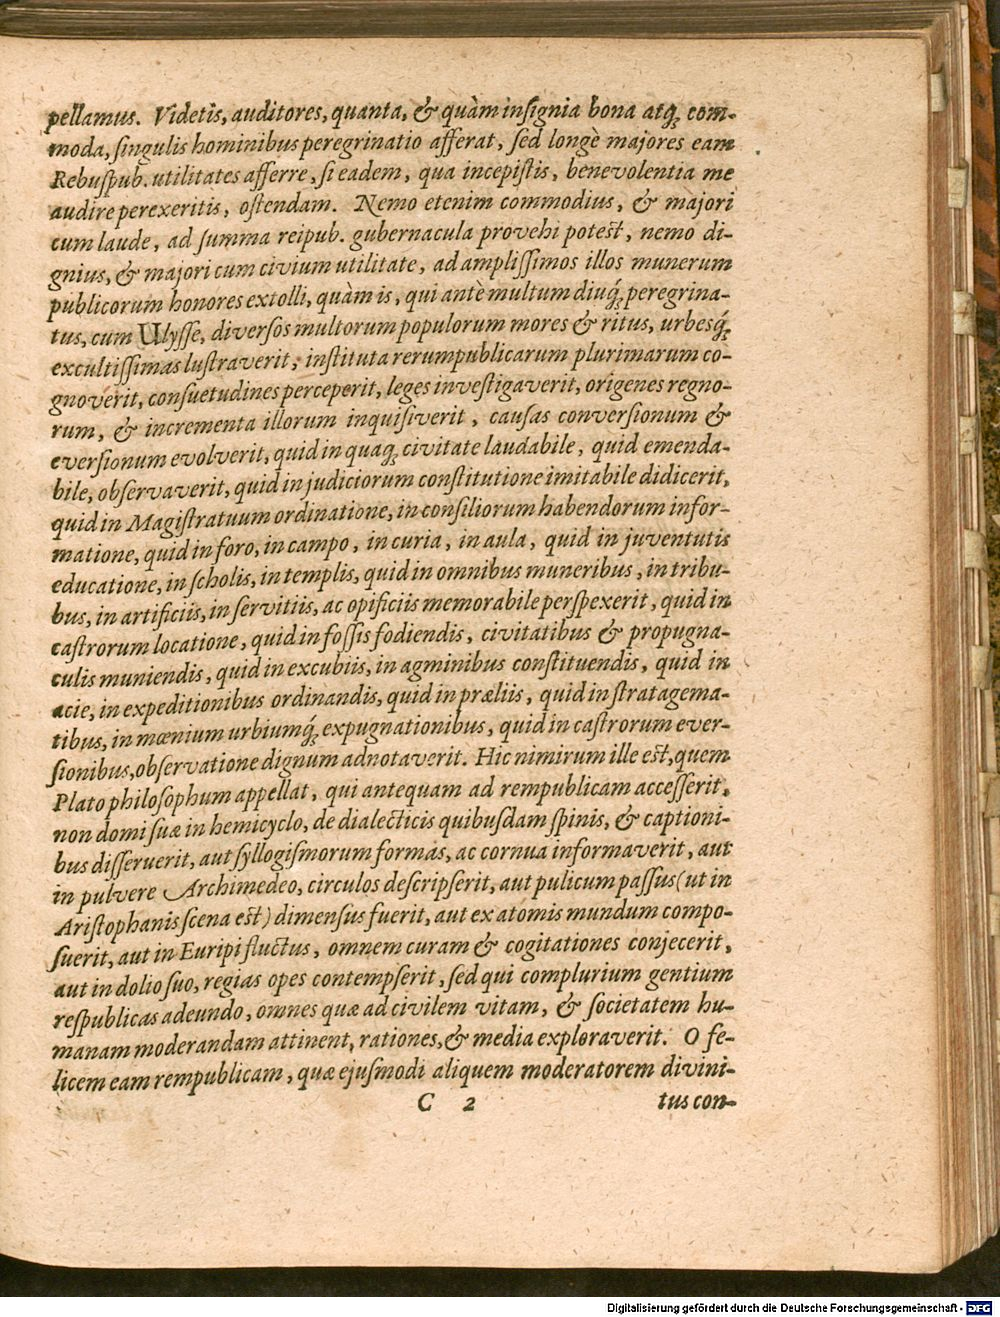 pellamus. Videtis, auditores, quanta, & quàm insignia bona atq́; com-
moda, singulis hominibus peregrinatio afferat, sed longè majores eam
Rebuspub. utilitates afferre, si eadem, qua incepistis, benevolentia me
audire perexeritis, ostendam. Nemo etenim commodius, & majori
cum laude, ad summa reipub. gubernacula provehi potest, nemo di-
gnius, & majori cum civium utilitate, ad amplissimos illos munerum
publicorum honores extolli, quàm is, qui antè multum diuq́; peregrina-
tus, cum Ulysse, diversos multorum populorum mores & ritus, urbesq́;
excultissimas lustraverit, instituta rerumpublicarum plurimarum co-
gnoverit, consuetudines perceperit, leges investigaverit, origenes regno-
rum, & incrementa illorum inquisiverit, causas conversionum &
eversionum evolverit, quid in quaq; civitate laudabile, quid emenda-
bile, observaverit, quid in judiciorum constitutione imitabile didicerit,
quid in Magistratuum ordinatione, in consiliorum habendorum infor-
matione, quid in foro, in campo, in curia, in aula, quid in juventutis
educatione, in scholis, in templis, quid in omnibus muneribus, in tribu-
bus, in artificiis, in servitiis, ac opificiis memorabile perspexerit, quid in
castrorum locatione, quid in fossis fodiendis, civitatibus & propugna-
culis muniendis, quid in excubiis, in agminibus constituendis, quid in
acie, in expeditionibus ordinandis, quid in præliis, quid in stratagema-
tibus, in mœnium urbiumq́; expugnationibus, quid in castrorum ever-
sionibus, observatione dignum adnotaverit. Hic nimirum ille est, quem
Plato philosophum appellat, qui antequam ad rempublicam accesserit,
non domi suæ in hemicyclo, de dialecticis quibusdam spinis, & captioni-
bus disseruerit, aut syllogismorum formas, ac cornua informaverit, aut
in pulvere Archimedeo, circulos descripserit, aut pulicum passus (ut in
Aristophanis scena est) dimensus fuerit, aut ex atomis mundum compo-
suerit, aut in Euripi fluctus, omnem curam & cogitationes conjecerit,
aut in dolio suo, regias opes contempserit, sed qui complurium gentium
respublicas adeundo, omnes quæ ad civilem vitam, & societatem hu-
manam moderandam attinent, rationes, & media exploraverit. O fe-
licem eam rempublicam, quæ ejusmodi aliquem moderatorem divini-
C 2 tus con-
Digitalisierung gefördert durch die Deutsche Forschungsgemeinschaft - DFG